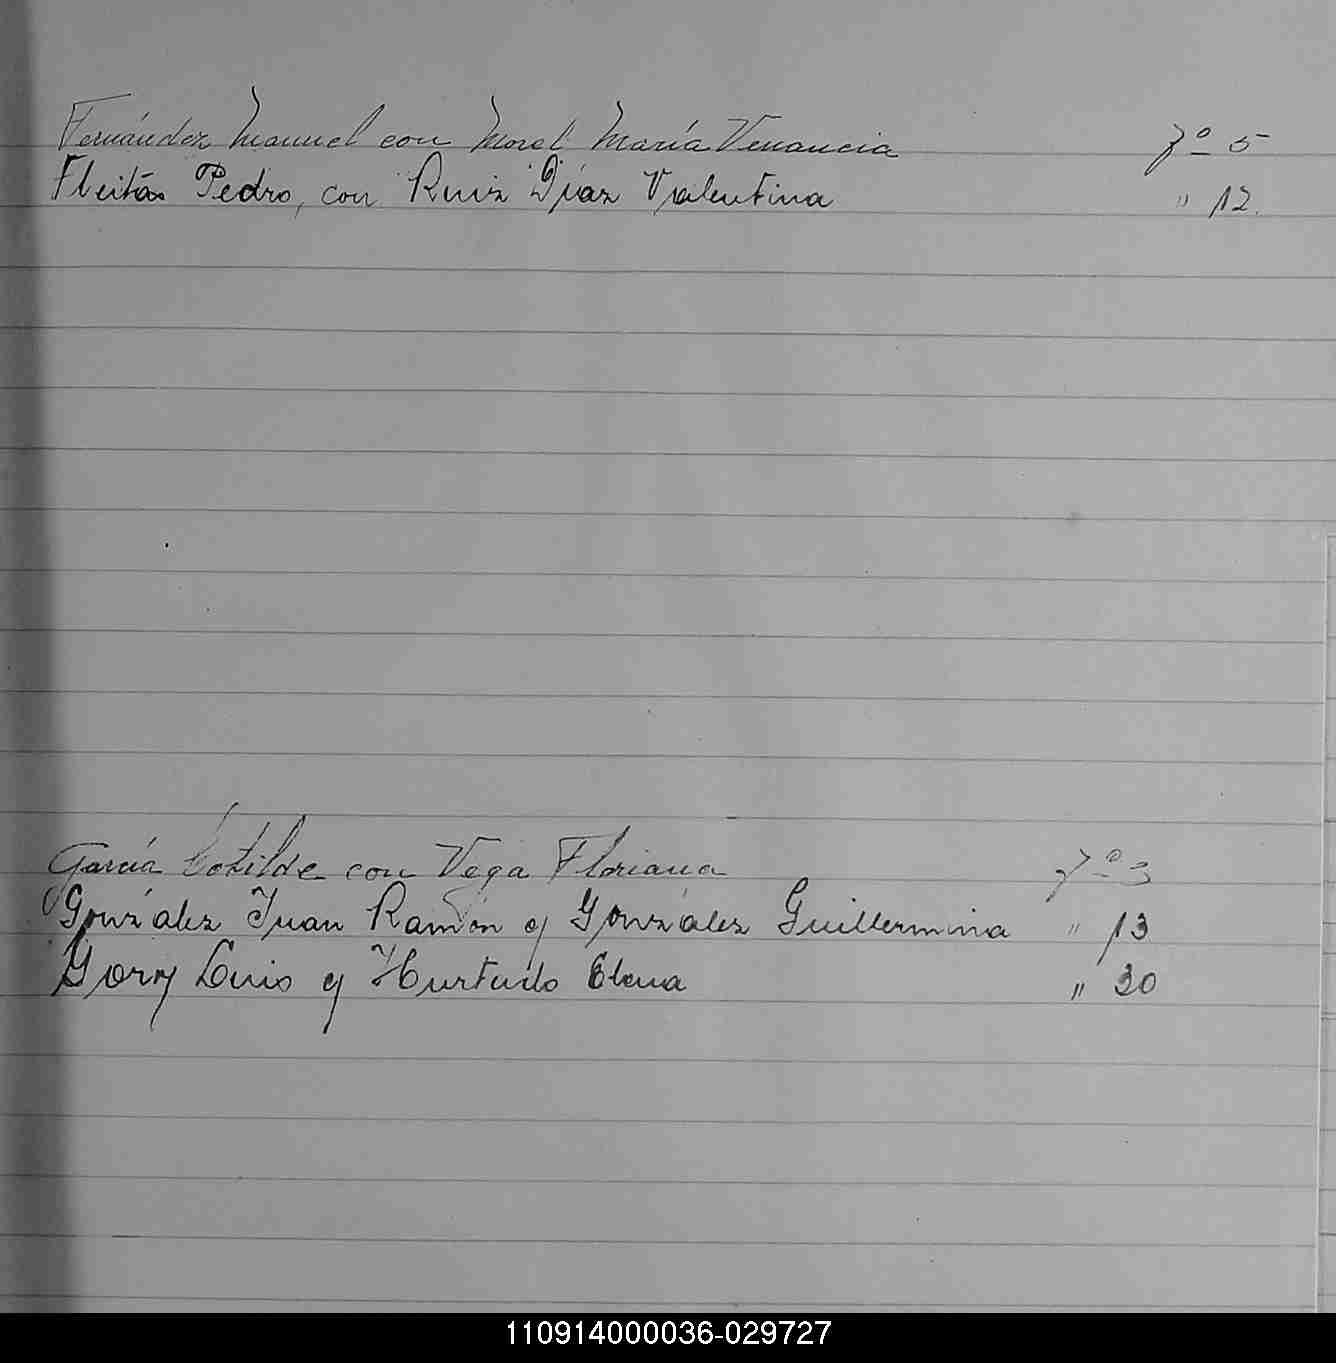 Fernández Manuel con Morel María Venancia fº 5
Fleitas Pedro, con Ruiz Díaz Valentina " 12.
García Cotilde con Vega Floriana fº 3
González Juan Ramón y González Guillermina " 13
Gory Luis y Hurtado Elena " 20
110914000036-029727